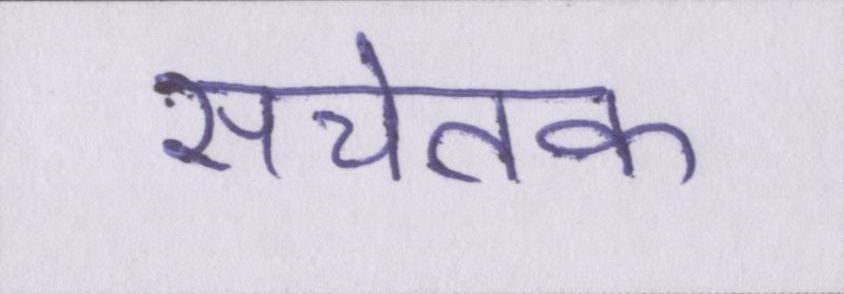 सचेतक